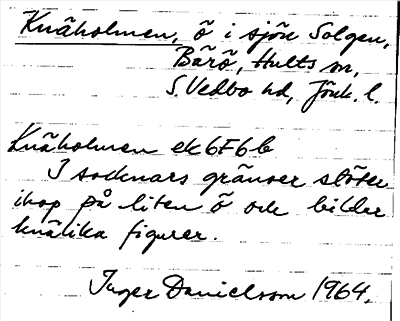 Knäholmen, ö i sjön Solgen,
Bärö, Hults sn,
S. Vedbo hd, Jönk. l.
Knäholmen ek 6F6b
I socknars gränser stöter
ihop på liten ö och bilder
knälika figurer.
Inger Danielsson 1964.